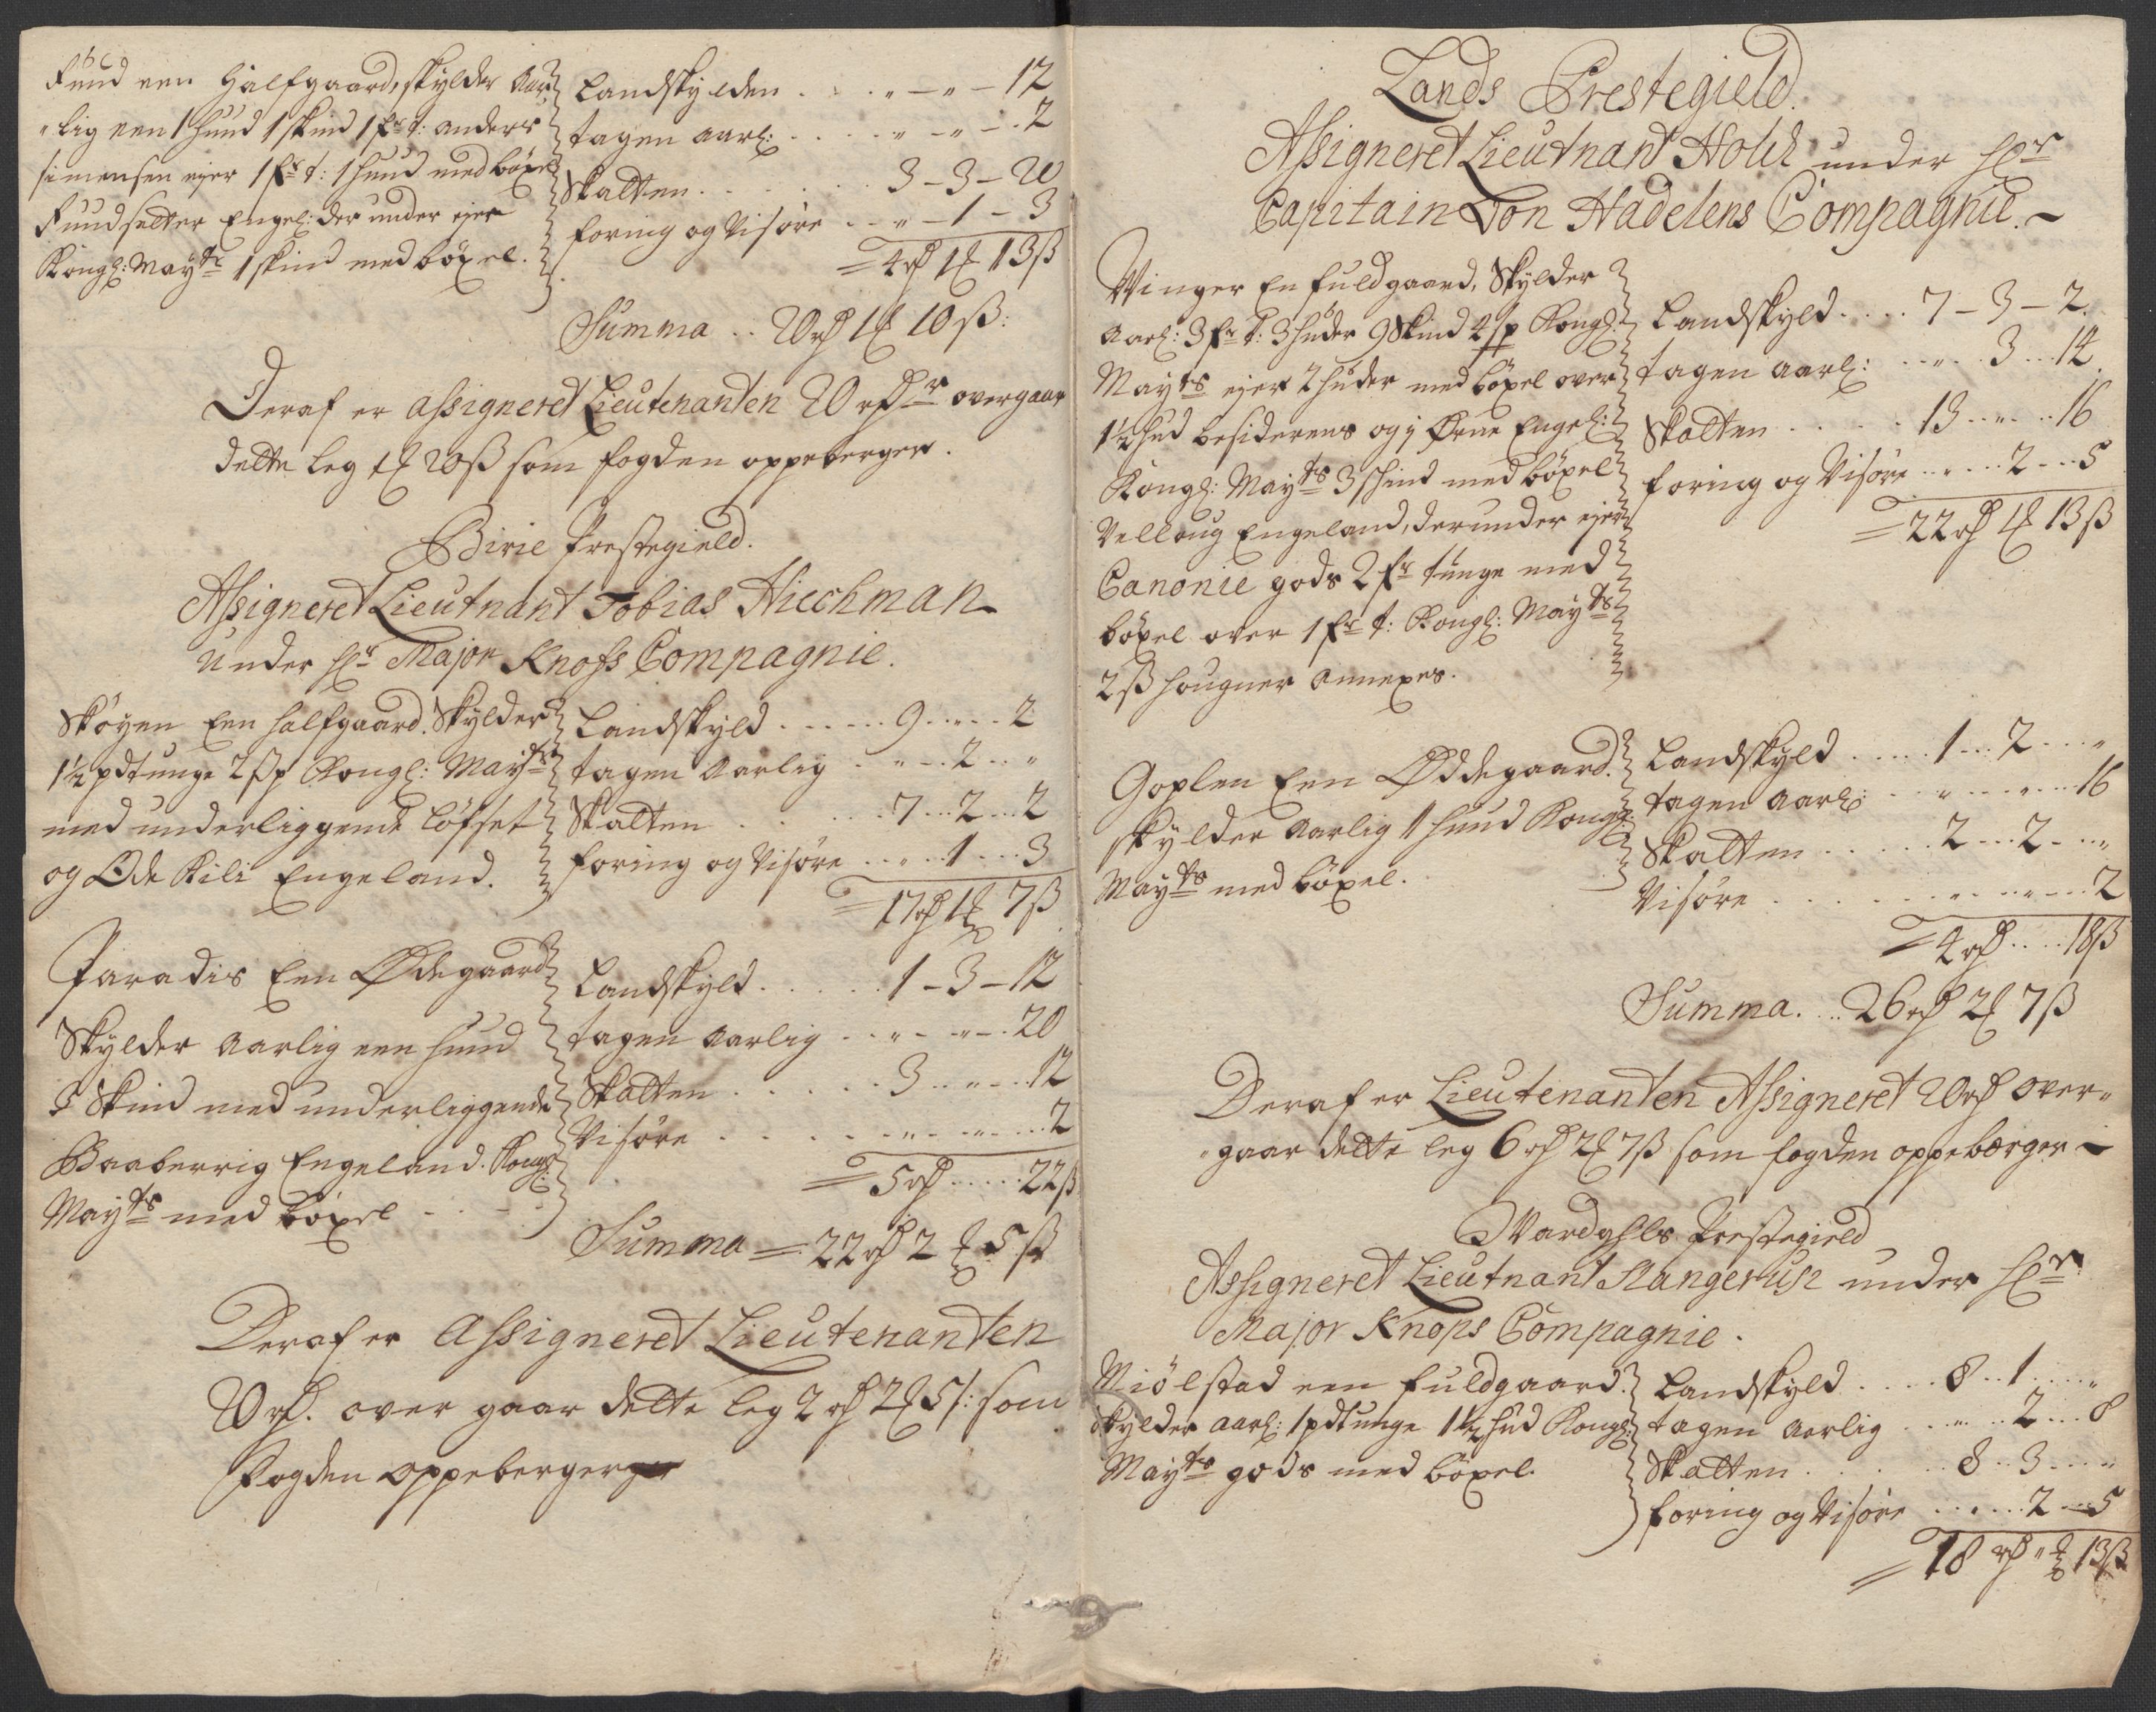 Fuud een Halfgaard, skylder Aar-
lig een 1 huud 1 skind 1 fr t: Anders
simensen ejer 1 fr t: 1 huud med böxel
Fuudsætter Engel: der under ejer
Kongl: Mayts 1 skind med böxel.
Landskylden . . . „ – „ – 12
tagen aarl: . . . „ – „ – 2
Skatten . . . 3 – 3 – 20
foring og Visöre . . „ – 1 – 3
= 4 rd 1 ₰ 13 ß
Summa . . 20 rd 1 ₰ 10 ß:
Deraf er assigneret Lieutenanten 20 rdr overgaar
dette leg 1 ₰ 20 ß som fogden oppeberger.
Birie Prestegield.
Assigneret Lieutnant Tobias Hiechman
Under Hr Major Knofs Compagnie.
Sköyen Een halfgaard. Skylder
1½ pdtunge 2 ßp Kongl: Mayts
med underliggende löfset
og Öde Kili Engeland.
Landskyld . . . 9 . . „ . . 2
tagen Aarlig . . „ . . 2 . . „
Skatten . . . 7 . . 2 . . 2
foring og Visöre . . „ . . 1 . . 3
= 17 rd 1 ₰ 7 ß
Paradis Een Ødegaard
Skylder Aarlig een huud
5 Skind med underliggende
Baaberrig Engeland. Kongl:
Mayts med böxel
Landskyld . . . 1 – 3 – 12
tagen aarlig . . „ . . „ . . 20
Skatten . . . 3 . . „ . . 12
Visöre . . . „ . . „ . . 2
= 5 rd . . . 22 ß
Summa = 22 rd 2 ₰ 5 ß
Deraf er Assigneret Lieutenanten
20 rd. over gaar dette leg 2 rd 2 ₰ 5 ß: som
Fogden oppeberger
Lands Prestegield.
Assigneret Lieutnant Holst under Hr
Capitain Von Hadelens Compagnie. –
Vinger En fuldgaard, Skylder
Aarl: 3 fr t: 3 huder 9 Skind 4 ßp Kongl:
Mayts ejer 2 huder med böxel over
1½ hud besiderens og i Ørne Engel:
Kongl: Mayts 3 Skind med böxel
Velloug Engeland, derunder ejer
Canonie gods 2 fr tünge med
böxel over 1 fr t: Kongl: Mayts
2 ß hougner Annexes.
Landskyld . . . 7 – 3 – 2.
tagen aarl: . . „ . . 3 . . 14.
Skatten . . . 13 . . „ . . 16
foring og Visöre . . „ . . 2 . . 5
= 22 rd 1 ₰ 13 ß
Goplen Een Øddegaard.
skylder Aarlig 1 huud Kongl:
Mayts med böxel.
Landskyld . . . 1 . . 2 . . „
tagen Aarl: . . „ . . „ . . 16
Skatten . . . 2 . . 2 . . „
Visöre . . . „ . . „ . . 2
= 4 rd . . . 18 ß
Summa. . . 26 rd 2 ₰ 7 ß
Deraf er Lieutenanten Assigneret 20 rd over-
gaar dette leg 6 rd 2 ₰ 7 ß som fogden oppebærger –
Wardahls Prestegield
Assigneret Lieutnant Stangerup under Hr
Major Knops Compagnie.
Miölstad een fuldgaard.
skylder aarl: 1 pdtunge 1½ hud Kongl:
Mayts gods med böxel.
Landskyld . . . 8 . . 1 . . „
tagen Aarlig . . „ . . 2 . . 8
Skatten . . . 8 . . 3 . . „
foring og Visöre . . . 2 . . 5
= 18 rd „ ₰ 13 ß